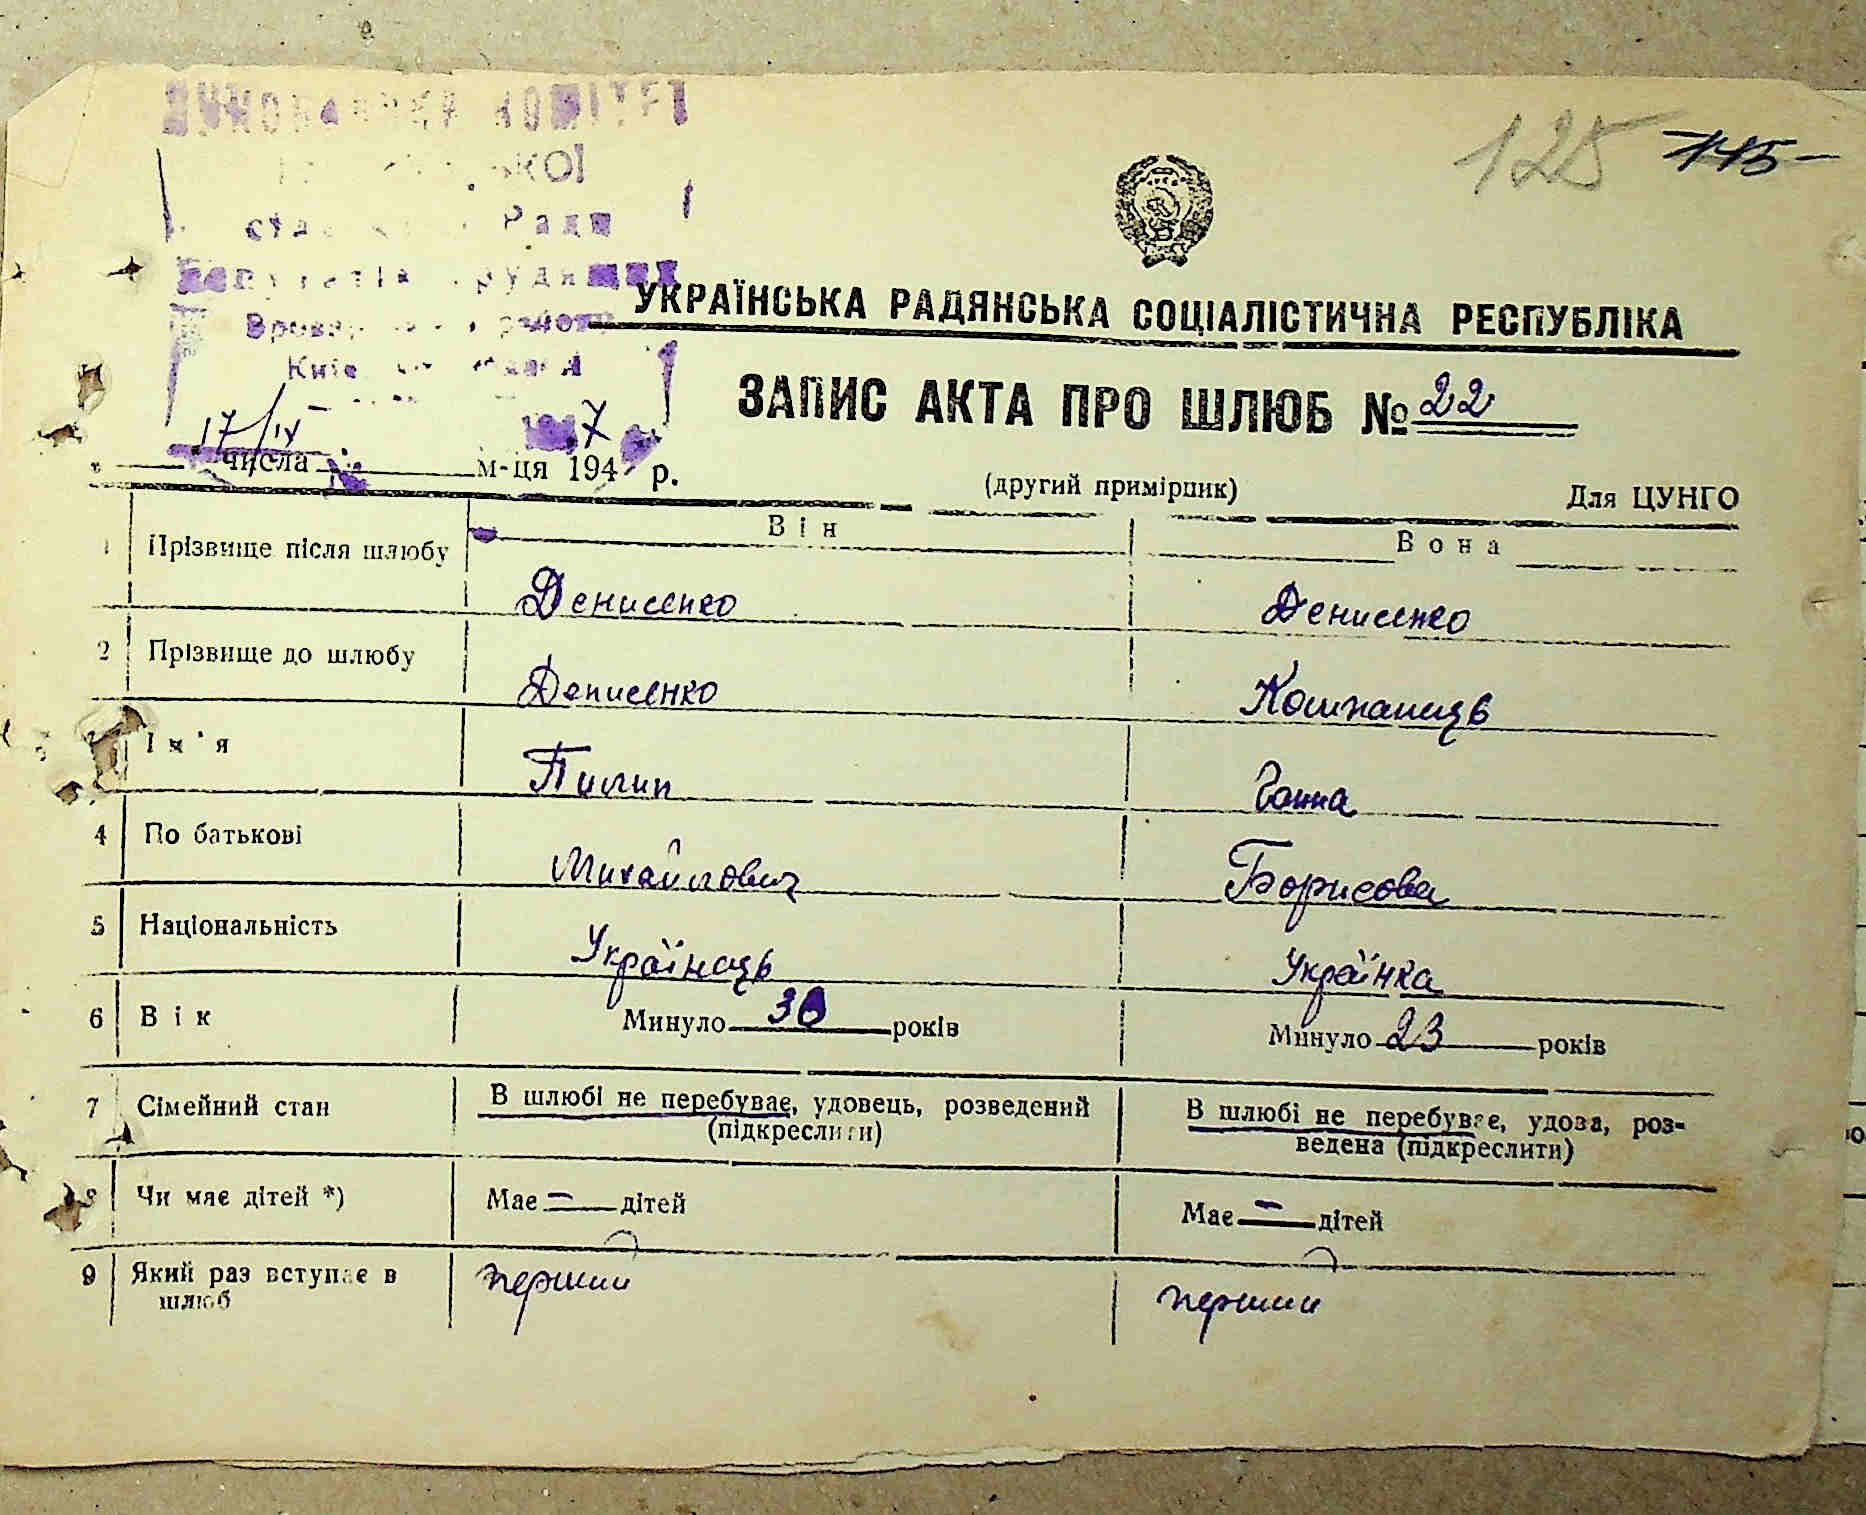 125 115
КОМІТЕТ
Ради
району
УКРАЇНСЬКА РАДЯНСЬКА СОЦІАЛІСТИЧНА РЕСПУБЛІКА
ЗАПИС АКТА ПРО ШЛЮБ № 22
17/IX 1947
числа м-ця 194 р.
(другий примірник) Для ЦУНГО
Він Вона
1 Прізвище після шлюбу Денисенко Денисенко
2 Прізвище до шлюбу Денисенко Компанець
Ім'я Пилип Ганна
4 По батькові Михайлович Борисова
5 Національність Українець Українка
6 Вік Минуло 30 років Минуло 23 років
7 Сімейний стан В шлюбі не перебуває, удовець, розведений (підкреслити) В шлюбі не перебуває, удова, роз-
ведена (підкреслити)
8 Чи має дітей *) Має — дітей Має — дітей
9 Який раз вступає в шлюб перший перший